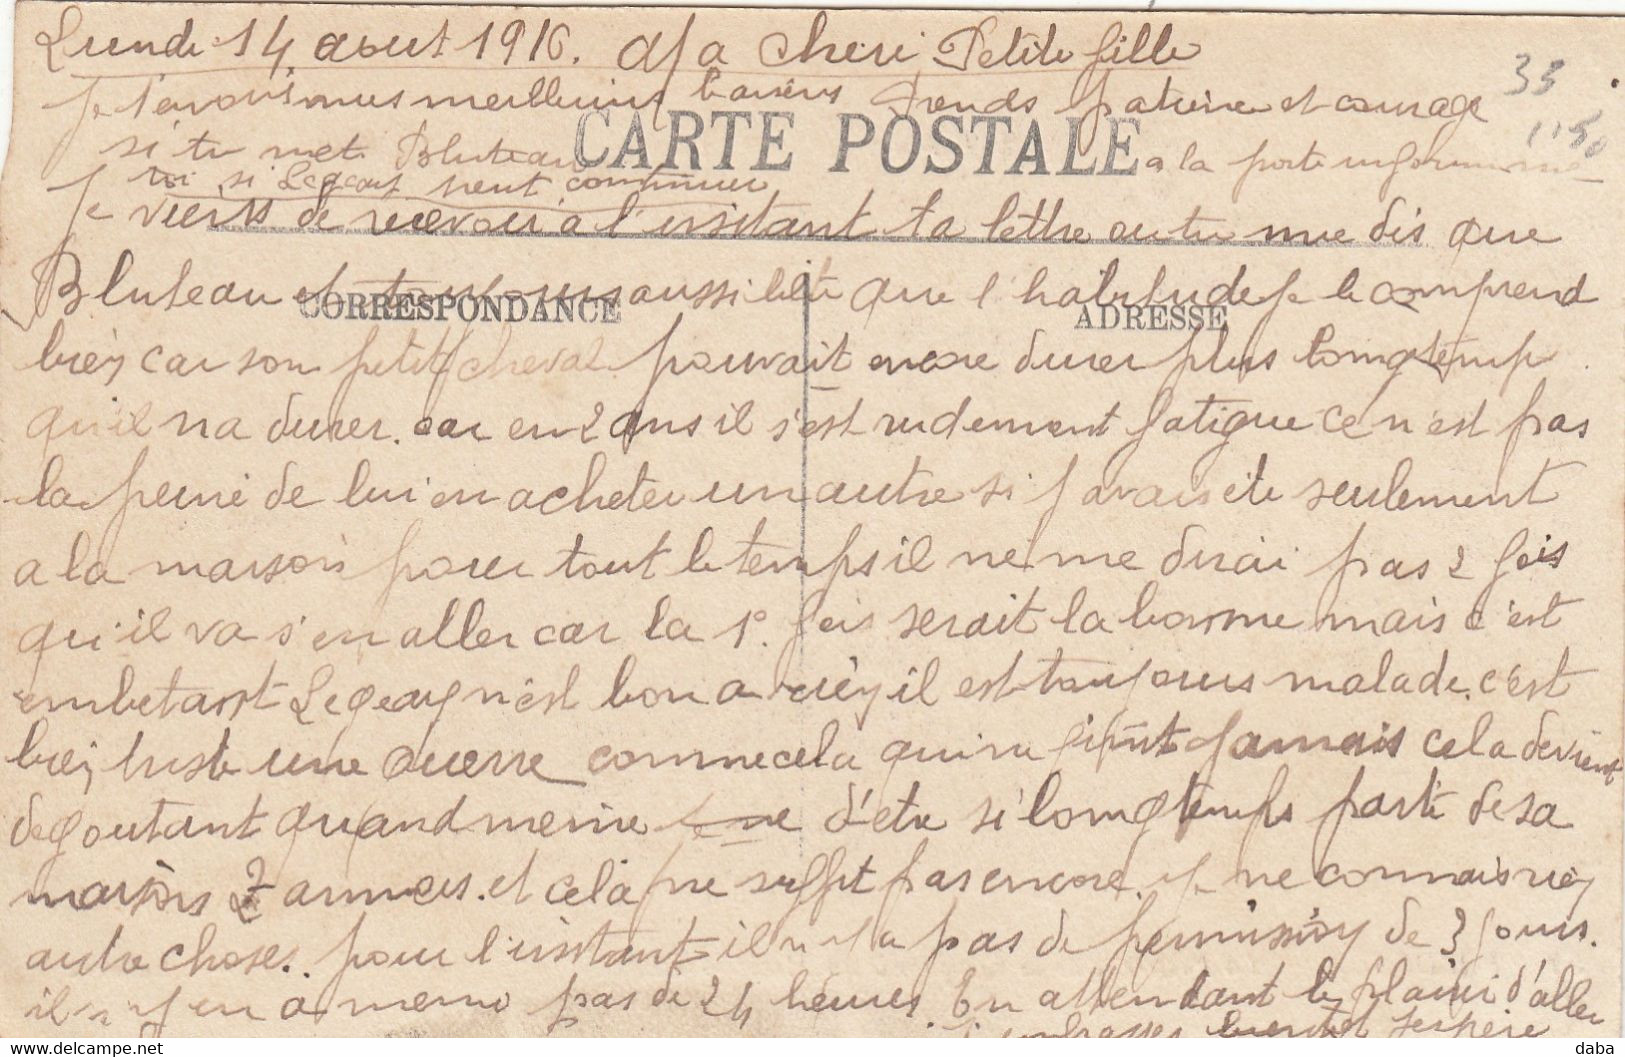 Lundi 14 aout 1916. Ma cheri Petite fille
33
Je t'envois mes meilleurs baisers Prends patience et courage
1150
CARTE POSTALE
si tu met Bluteau a la porte informe
toi si Legeay veut continuer
Je viens de recevoir a l'instant ta lettre ou tu me dis que
Bluteau et toujours aussi bête que l'habitude Je le comprend
CORRESPONDANCE
ADRESSE
biey car son petit cheval pouvait encore durer plus longtemp
qu'il na durer. car en 2 ans il s'est rudement fatigue ce n'est pas
la peine de lui en acheter un autre si J avais ete seulement
a la maison pour tout le temps il ne me dirai pas 2 fois
qu'il va s'en aller car la 1e fois serait la bonne mais c'est
embetant Legeay n'est bon a riey il est toujours malade. c'est
biey triste une Guerre comme cela qui ne finit Jamais cela devient
degoutant quand meme de ne d'etre si longtemps parti de sa
maison 2 annees. et cela ne suffit pas encore. Je ne connais riey
autre choses. pour l'instant il n y a pas de permissioy de 3 Jours.
il n y en a meme pas de 24 heures. En attendant le plaisir d'aller